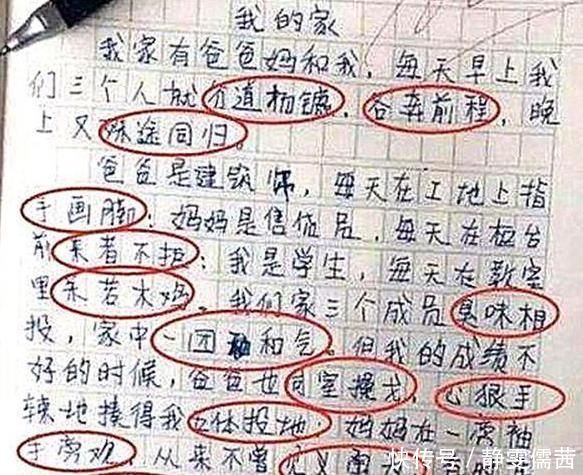 我的家
我家有爸爸妈和我，每天早上我
们三个人就分道杨镳，各奔前程，晚
上又殊途同归。
爸爸是建筑师，每天在工地上指
手画脚；妈妈是售货员，每天在柜台
前来者不拒；我是学生，每天在教室
里呆若木鸡。我们家三个成员臭味相
投，家中一团和气。但我的成绩不
好的时候，爸爸也同室操戈，心狠手
辣地揍得我五体投地，妈妈在一旁袖
手旁观，从来不曾
快传号/静雯儒茜